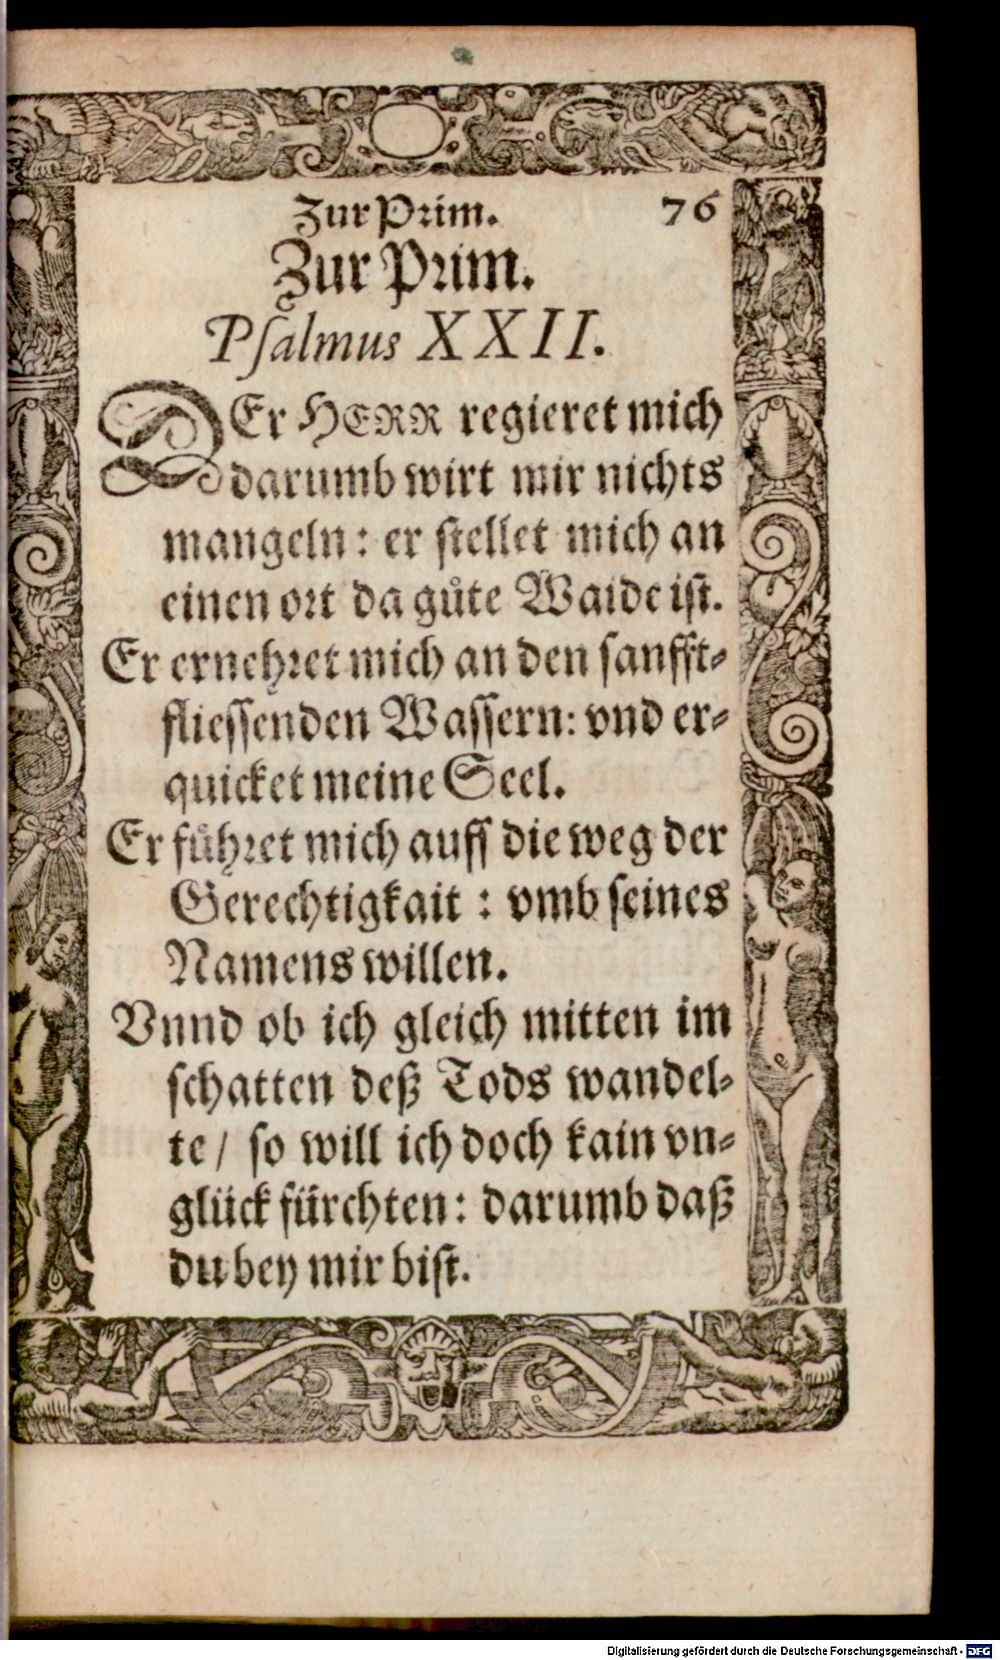 Zur Prim. 76
Zur Prim.
Psalmus XXII.
DEr HERR regieret mich
darumb wirt mir nichts
mangeln: er stellet mich an
einen ort da gůte Waide ist.
Er ernehret mich an den sanfft-
fliessenden Wassern: vnd er-
quicket meine Seel.
Er fůhret mich auff die weg der
Gerechtigkait : vmb seines
Namens willen.
Vnnd ob ich gleich mitten im
schatten deß Tods wandel-
te / so will ich doch kain vn-
glück fürchten: darumb daß
du bey mir bist.
Digitalisierung gefördert durch die Deutsche Forschungsgemeinschaft - DFG